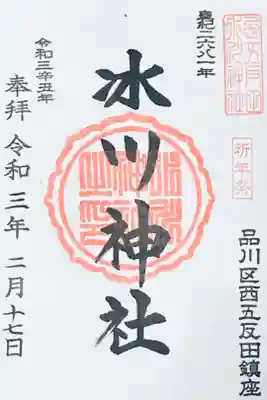 皇紀二六八一年
祈年祭
品川区西五反田鎮座
氷川神社
令和三辛丑年
奉拝 令和三年 二月十七日